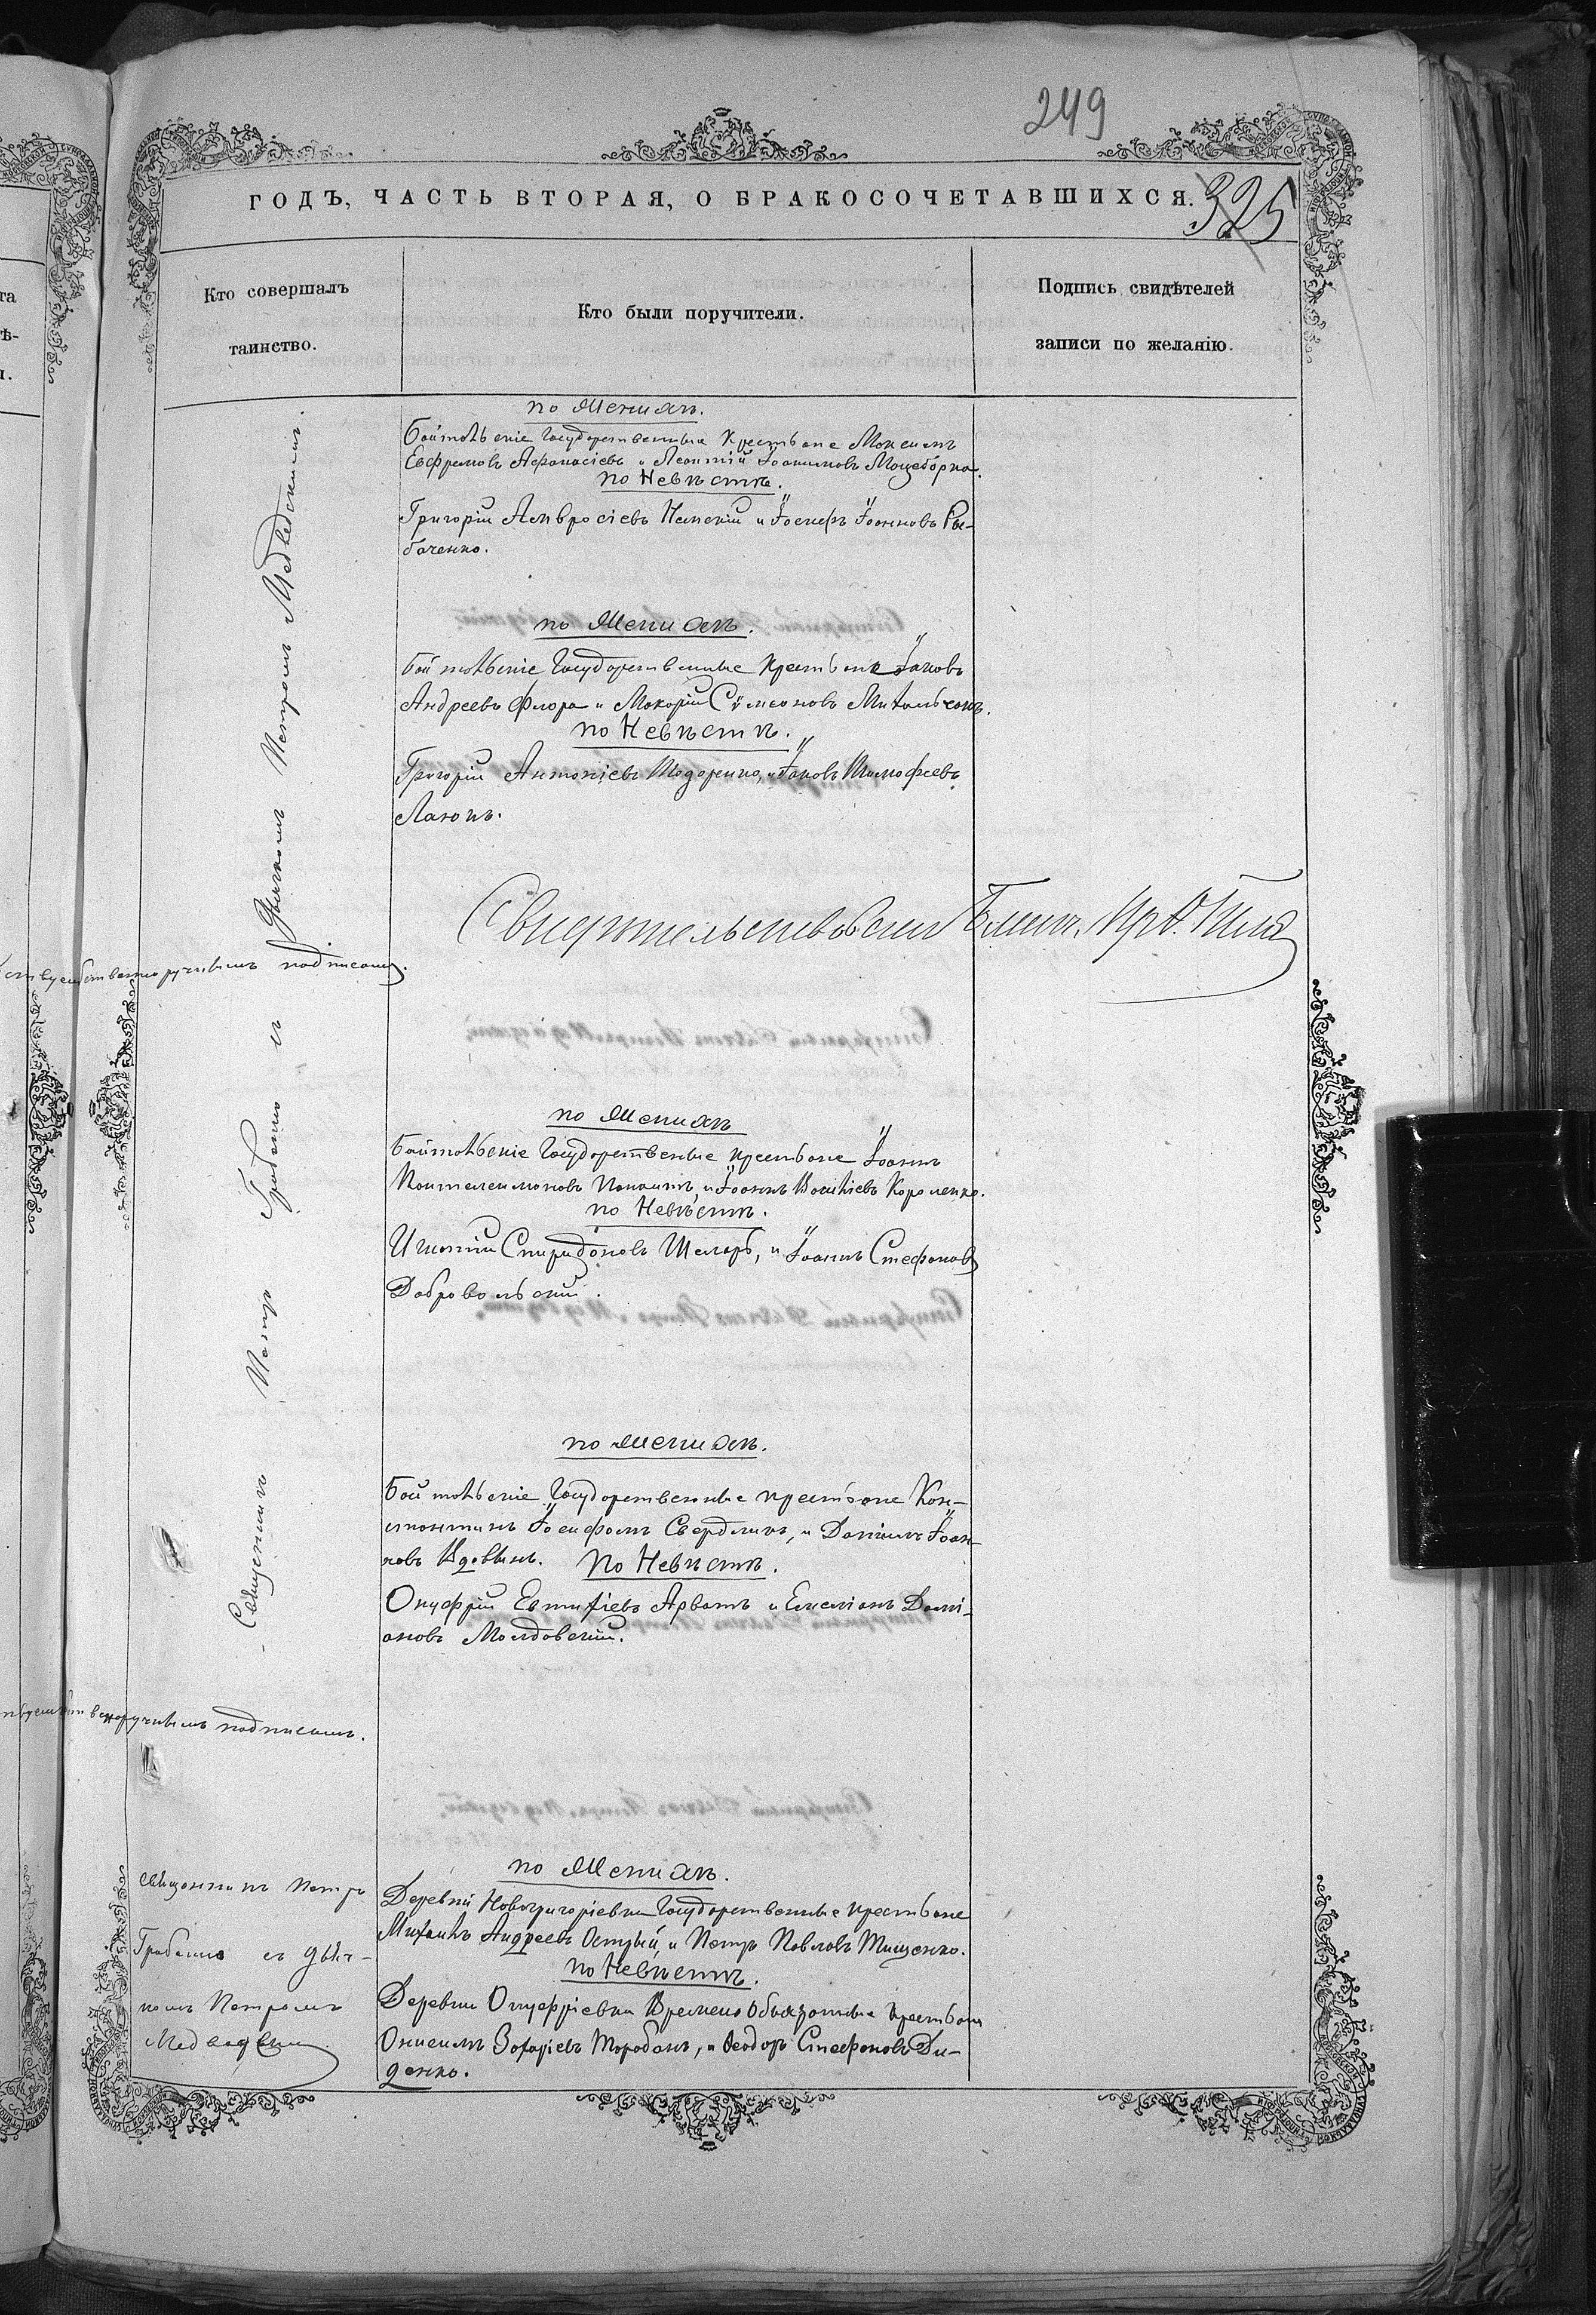 249
ГОДЪ, ЧАСТЬ ВТОРАЯ, О БРАКОСОЧЕТАВШИХСЯ.
325
Кто совершалъ
таинство.
Кто были поручители.
Подпись свидѣтелей
записи по желанію.
Священникъ Петръ Грабенко съ Дьячкомъ Петромъ Медведскимъ.
по Женихѣ.
Государственные Крестьяне Максимъ
Евфремовъ Афанасіевъ и Леонтій Іоакимовъ
по Невѣстѣ.
Григорій Амвросіевъ и Іосифъ Іоанновъ Ры-
баченко.
по Женихѣ.
Государственные крестьяне Іаковъ
Андреевъ Флора и Макарій Сѵмеоновъ
по Невѣстѣ.
Григорій Антоніевъ Тодоренко, и Іаковъ Тимофеевъ
Лакохъ.
Свидетельствовалъ
собственноручнымъ подписомъ.
по Женихѣ
Государственные крестьяне Іоаннъ
Пантелеимоновъ и Іоаннъ Короленко.
по Невѣстѣ.
Игнатій Спиридоновъ и Іоаннъ Стефановъ
Добровольскій.
по Женихѣ.
Государственные крестьяне Кон-
стантинъ Іосифовъ Свердликъ, и Даніилъ Іоан-
новъ Вдовинъ.
по Невѣстѣ.
Онуфрій Евтихіевъ Арватъ и Емеліанъ Дамі-
ановъ Молдовскій.
подписомъ.
Священникъ Петръ
Грабенко съ Дьяч-
комъ Петромъ
Медведскимъ
по Женихѣ.
Деревни Новогригоріевки Государственные крестьяне
Михаилъ Андреевъ Острый, и Петръ Павловъ Тищенко.
по Невѣстѣ.
Деревни Онуфріевки Временообязанные крестьяне
Онисимъ Захаріевъ Торобанъ, и Ѳеодоръ Стефановъ Ди-
денко.